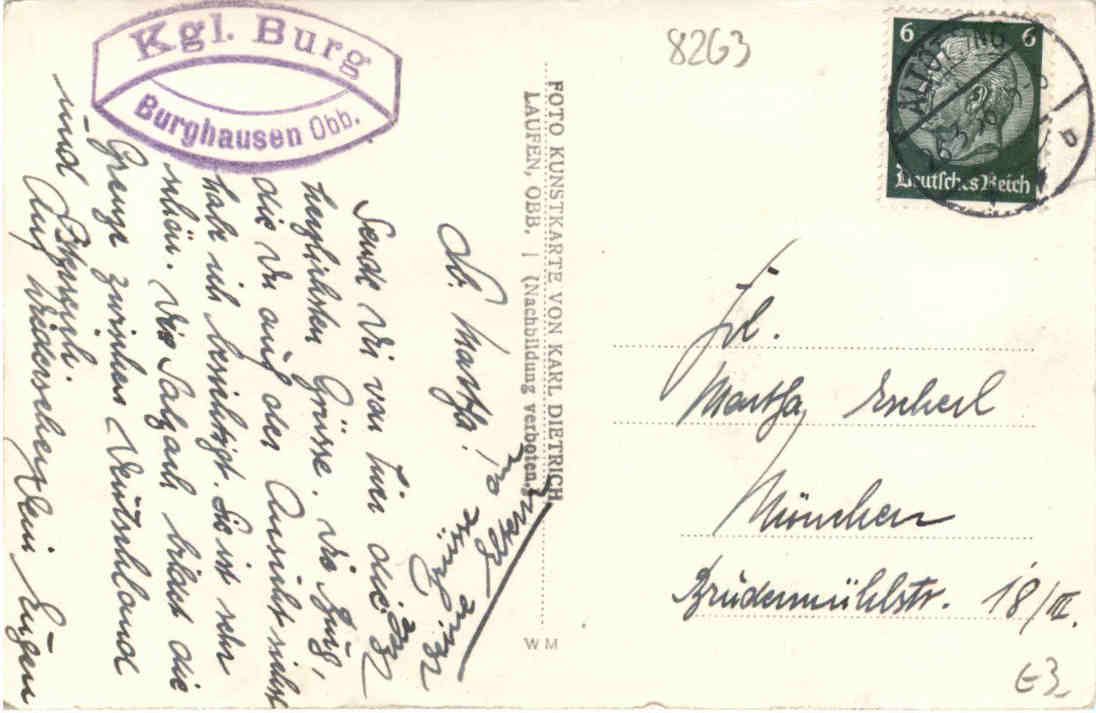 Kgl. Burg
Burghausen Obb.
8263
6 6
Deutsches Reich
ALTÖTTING
FOTO KUNSTKARTE VON KARL DIETRICH
LAUFEN, OBB. | (Nachbildung verboten.)
WM
Lb. Martha!
Sende Dir von hier die
herzlichsten Grüsse. Die Burg,
die Du auf der Ansicht siehst
habe ich besichtigt. Sie ist sehr
schön. Die Salzach bildet die
Grenze zwischen Deutschland
und Österreich.
Auf Wiedersehen Dein Eugen
Grüsse an
Deine Eltern
Frl.
Martha Escherl
München
Brudermühlstr. 18/III.
€3